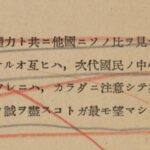 力ト共ニ他國ニソノ比ヲ見
ルオ互ヒハ、次代國民ノ中
レニハ、カラダニ注意シテ
誠ヲ盡スコトガ最モ望マシ